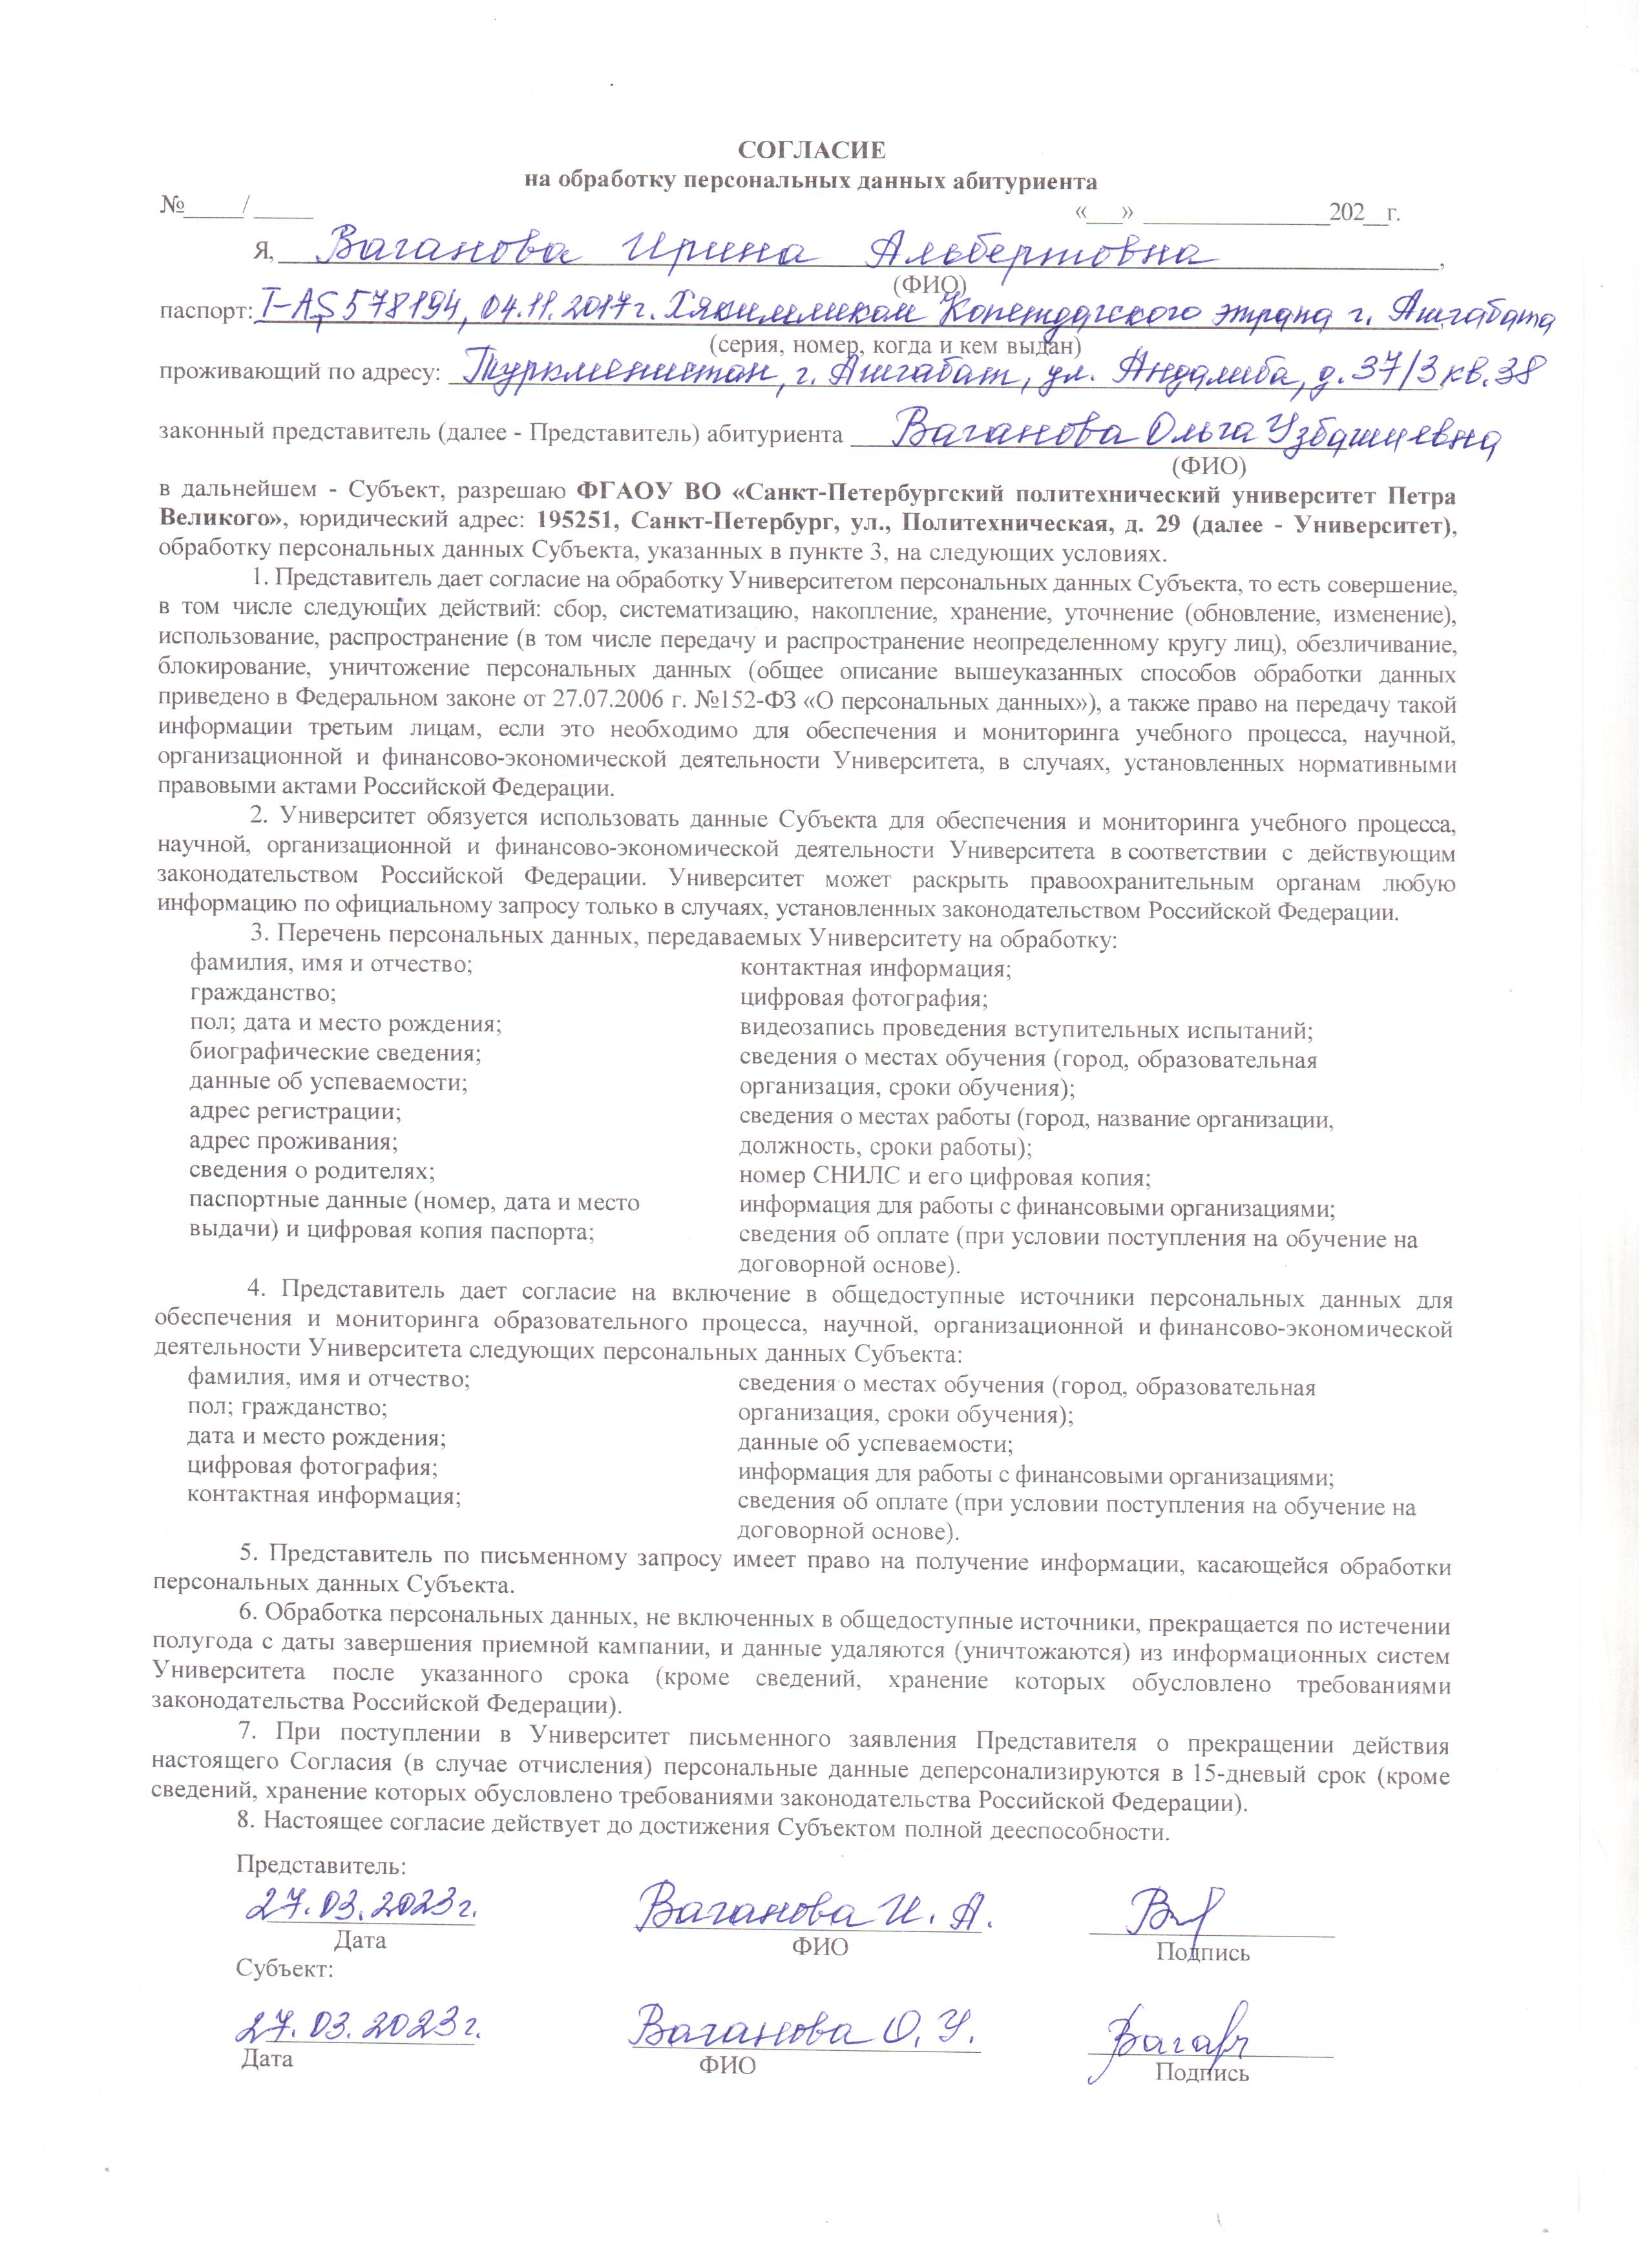 СОГЛАСИЕ
на обработку персональных данных абитуриента
№_____/_____ «___» _______________202__г.
Я, Ваганова Ирина Альбертовна,
(ФИО)
паспорт: I-AŞ 578194, 04.11.2017г. Хякимликом Копетдагского этрапа г. Ашгабата
(серия, номер, когда и кем выдан)
проживающий по адресу: Туркменистан, г. Ашгабат, ул. Андалиба, д. 37/3 кв. 38
законный представитель (далее - Представитель) абитуриента Ваганова Ольга Узбашиевна
(ФИО)
в дальнейшем - Субъект, разрешаю ФГАОУ ВО «Санкт-Петербургский политехнический университет Петра
Великого», юридический адрес: 195251, Санкт-Петербург, ул., Политехническая, д. 29 (далее - Университет),
обработку персональных данных Субъекта, указанных в пункте 3, на следующих условиях.
1. Представитель дает согласие на обработку Университетом персональных данных Субъекта, то есть совершение,
в том числе следующих действий: сбор, систематизацию, накопление, хранение, уточнение (обновление, изменение),
использование, распространение (в том числе передачу и распространение неопределенному кругу лиц), обезличивание,
блокирование, уничтожение персональных данных (общее описание вышеуказанных способов обработки данных
приведено в Федеральном законе от 27.07.2006 г. №152-ФЗ «О персональных данных»), а также право на передачу такой
информации третьим лицам, если это необходимо для обеспечения и мониторинга учебного процесса, научной,
организационной и финансово-экономической деятельности Университета, в случаях, установленных нормативными
правовыми актами Российской Федерации.
2. Университет обязуется использовать данные Субъекта для обеспечения и мониторинга учебного процесса,
научной, организационной и финансово-экономической деятельности Университета в соответствии с действующим
законодательством Российской Федерации. Университет может раскрыть правоохранительным органам любую
информацию по официальному запросу только в случаях, установленных законодательством Российской Федерации.
3. Перечень персональных данных, передаваемых Университету на обработку:
фамилия, имя и отчество;
гражданство;
пол; дата и место рождения;
биографические сведения;
данные об успеваемости;
адрес регистрации;
адрес проживания;
сведения о родителях;
паспортные данные (номер, дата и место
выдачи) и цифровая копия паспорта;
контактная информация;
цифровая фотография;
видеозапись проведения вступительных испытаний;
сведения о местах обучения (город, образовательная
организация, сроки обучения);
сведения о местах работы (город, название организации,
должность, сроки работы);
номер СНИЛС и его цифровая копия;
информация для работы с финансовыми организациями;
сведения об оплате (при условии поступления на обучение на
договорной основе).
4. Представитель дает согласие на включение в общедоступные источники персональных данных для
обеспечения и мониторинга образовательного процесса, научной, организационной и финансово-экономической
деятельности Университета следующих персональных данных Субъекта:
фамилия, имя и отчество;
пол; гражданство;
дата и место рождения;
цифровая фотография;
контактная информация;
сведения о местах обучения (город, образовательная
организация, сроки обучения);
данные об успеваемости;
информация для работы с финансовыми организациями;
сведения об оплате (при условии поступления на обучение на
договорной основе).
5. Представитель по письменному запросу имеет право на получение информации, касающейся обработки
персональных данных Субъекта.
6. Обработка персональных данных, не включенных в общедоступные источники, прекращается по истечении
полугода с даты завершения приемной кампании, и данные удаляются (уничтожаются) из информационных систем
Университета после указанного срока (кроме сведений, хранение которых обусловлено требованиями
законодательства Российской Федерации).
7. При поступлении в Университет письменного заявления Представителя о прекращении действия
настоящего Согласия (в случае отчисления) персональные данные деперсонализируются в 15-дневый срок (кроме
сведений, хранение которых обусловлено требованиями законодательства Российской Федерации).
8. Настоящее согласие действует до достижения Субъектом полной дееспособности.
Представитель:
27.03.2023г. Ваганова И. А.
Дата ФИО Подпись
Субъект:
27.03.2023г. Ваганова О. У.
Дата ФИО Подпись